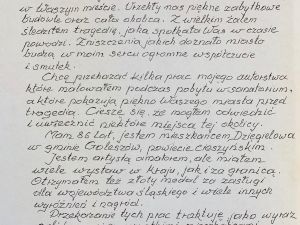 w Waszym mieście. Urzekły nas piękne zabytkowe
budowle oraz cała okolica. Z wielkim żalem
śledziłem tragedię, jaka spotkała Was w czasie
powodzi. Zniszczenia jakich doznało miasto
budzą w moim sercu ogromne współczucie
i smutek.
Chcę przekazać kilka prac mojego autorstwa
które malowałem podczas pobytu w sanatorium,
a które pokazują piękno Waszego miasta przed
tragedią. Cieszę się, że mogłem odwiedzić
i uwiecznić niektóre miejsca tej okolicy.
Mam 86 lat, jestem mieszkańcem Dzięgielowa
w gminie Goleszów, powiecie cieszyńskim.
Jestem artystą amatorem, ale miałem
wiele wystaw w kraju, jak i za granicą.
Otrzymałem też złoty medal za zasługi
dla województwa śląskiego i wiele innych
wyróżnień i nagród.
Przekazanie tych prac traktuję jako wyraz